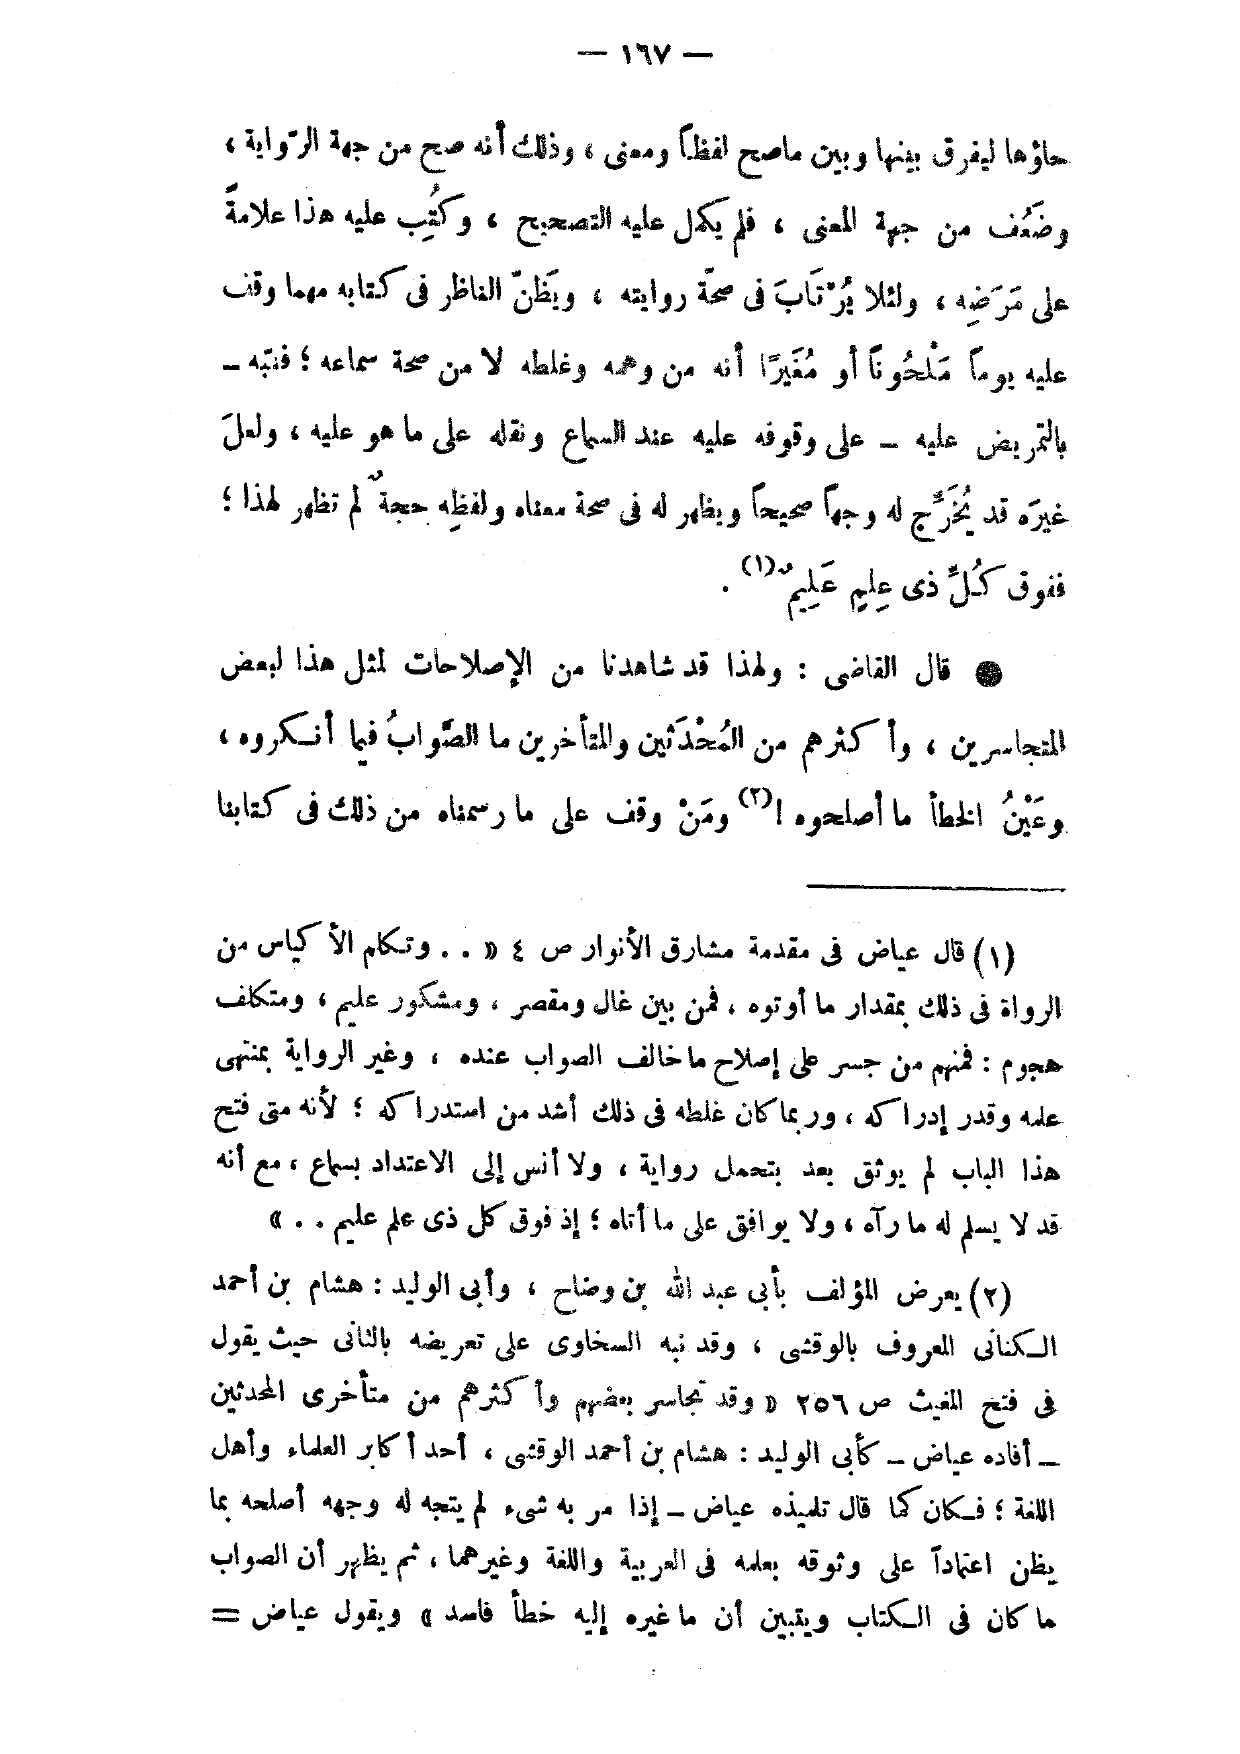 — ١٦٧ —
حاؤها ليفرق بينها وبين ماصح لفظاً ومعنى ، وذلك أنه صح من جهة الرّواية ،
وضَعُف من جهة المعنى ، فلم يكمل عليه التصحيح ، وكُتِب عليه هذا علامةً
على مَرَضِه ، ولئلا يُرْتَابَ فى صحّة روايته ، ويَظَنّ الناظر فى كتابه مهما وقف
عليه يوماً مَلْحُوناً أو مُغَيرًا أنه من وهمه وغلطه لا من صحة سماعه ؛ فنبّه ـ
بالتمريض عليه ـ على وقوفه عليه عند السماع ونقله على ما هو عليه ، ولعلَ
غيرَه قد يُخَرِّج له وجهاً صحيحاً ويظهر له فى صحة معناه ولفظِه حجةٌ لم تظهر لهذا ؛
ففوق كُلِّ ذى عِلمٍ عَلِيمٌ (١) .
● قال القاضى : ولهذا قد شاهدنا من الإصلاحات لمثل هذا لبعض
المتجاسرين ، وأكثرهم من المُحْدَثين والمتأخرين ما الصَّوابُ فيما أنكروه ،
وعَيْنُ الخطأ ما أصلحوه !(٢) ومَنْ وقف على ما رسمناه من ذلك فى كتابنا
(١) قال عياض فى مقدمة مشارق الأنوار ص ٤ « . . وتكلم الأكياس من
الرواة فى ذلك بمقدار ما أوتوه ، فمن بين غال ومقصر ، ومشكور عليم ، ومتكلف
هجوم : فمنهم من جسر على إصلاح ما خالف الصواب عنده ، وغير الرواية بمنتهى
علمه وقدر إدراكه ، وربما كان غلطه فى ذلك أشد من استدراكه ؛ لأنه متى فتح
هذا الباب لم يوثق بعد بتحمل رواية ، ولا أنس إلى الاعتداد بسماع ، مع أنه
قد لا يسلم له ما رآه ، ولا يوافق على ما أتاه ؛ إذ فوق كل ذى علم عليم . . »
(٢) يعرض المؤلف بأبى عبد الله بن وضاح ، وأبى الوليد : هشام بن أحمد
الكنانى المعروف بالوقشى ، وقد نبه السخاوى على تعريضه بالثانى حيث يقول
فى فتح المغيث ص ٢٥٦ « وقد تجاسر بعضهم وأكثرهم من متأخرى المحدثين
ـ أفاده عياض ـ كأبى الوليد : هشام بن أحمد الوقشى ، أحد أكابر العلماء وأهل
اللغة ؛ فكان كما قال تلميذه عياض ـ إذا مر به شىء لم يتجه له وجهه أصلحه بما
يظن اعتماداً على وثوقه بعلمه فى العربية واللغة وغيرهما ، ثم يظهر أن الصواب
ما كان فى الكتاب ويتبين أن ما غيره إليه خطأ فاسد » ويقول عياض =